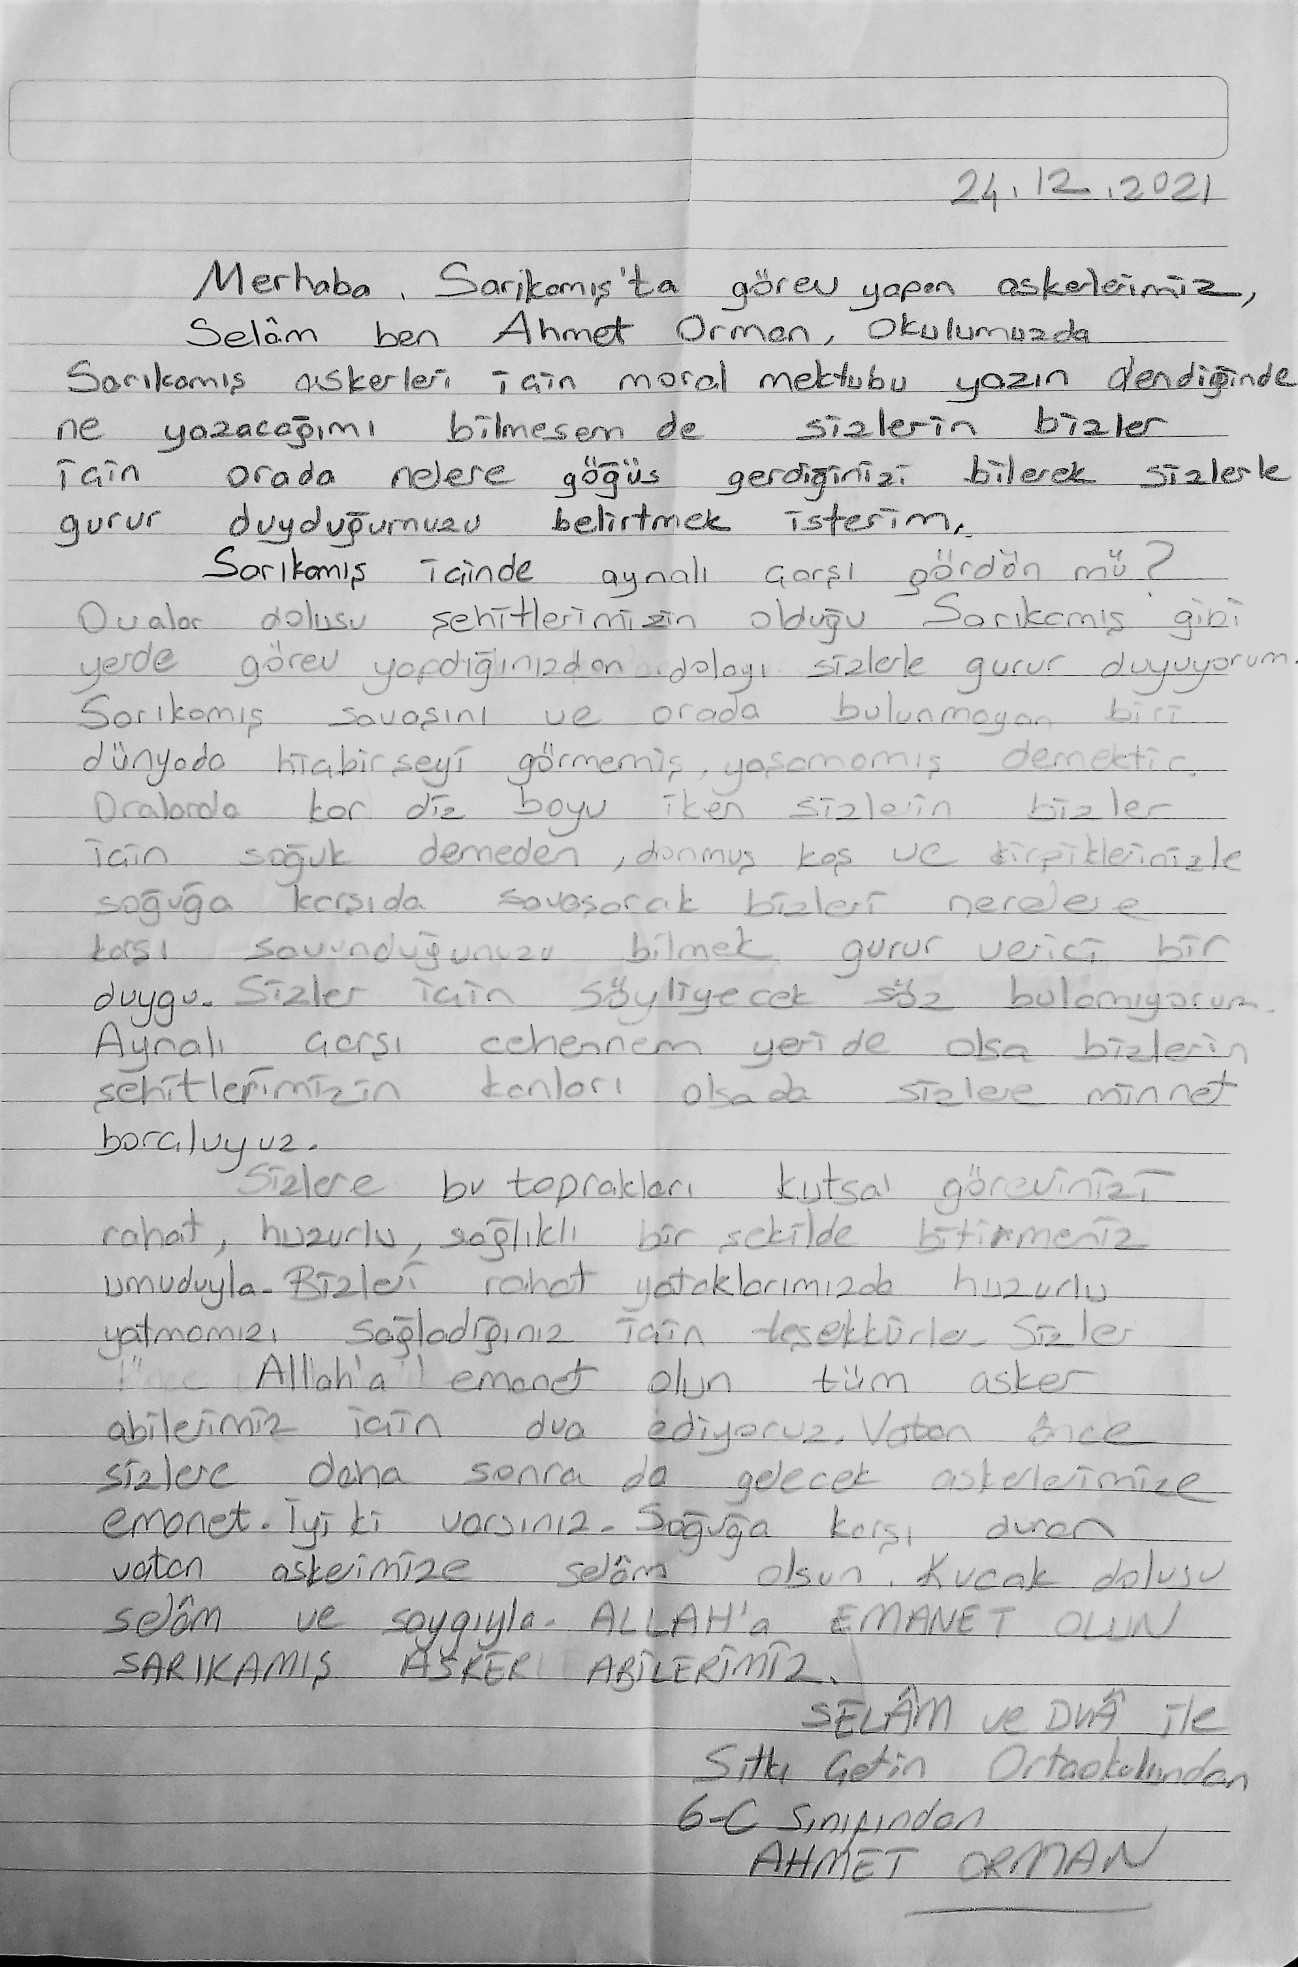 24.12.2021
Merhaba, Sarikamış'ta görev yapan askerlerimiz,
Selâm ben Ahmet Orman, Okulumuzda
Sarıkamış askerleri için moral mektubu yazın dendiğinde
ne yazacağımı bilmesem de sizlerin bizler
için orada nelere göğüs gerdiğinizi bilerek sizlerle
gurur duyduğumuzu belirtmek isterim.
Sarıkamış içinde aynalı çarşı gördön mü?
Dualar dolusu şehitlerimizin olduğu Sarıkamış gibi
yerde görev yapdığınızdan dolayı sizlerle gurur duyuyorum.
Sarıkamış savaşını ve orada bulunmayan biri
dünyada hiçbirşeyi görmemiş, yaşamamış demektir.
Oralarda kar diz boyu iken sizlerin bizler
için soğuk demeden, donmuş kaş ve kirpiklerinizle
soğuğa karşıda savaşarak bizleri nerelere
karşı savunduğunuzu bilmek gurur verici bir
duygu. Sizler için söyliyecek söz bulamıyorum.
Aynalı çarşı cehennem yeri de olsa bizlerin
şehitlerimizin kanları olsada sizlere minnet
borçluyuz.
Sizlere bu toprakları kutsal görevinizi
rahat, huzurlu, sağlıklı bir şekilde bitirmeniz
umuduyla. Bizleri rahat yataklarımızda huzurlu
yatmamızı sağladığınız için teşekkürler. Sizler
Allah'a emanet olun tüm asker
abilerimiz için dua ediyoruz. Vatan önce
sizlere daha sonra da gelecek askerlerimize
emanet. İyi ki varsınız. Soğuğa karşı duran
vatan askerimize selâm olsun. Kucak dolusu
selâm ve saygıyla. ALLAH'a EMANET OLUN
SARIKAMIŞ ASKER ABİLERİMİZ.
SELÂM ve DUÂ ile
Sıtkı Çetin Ortaokulundan
6-C Sınıfından
AHMET ORMAN